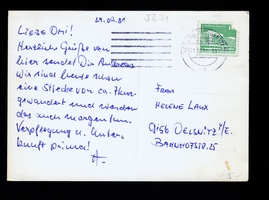 29.09.81
LIEBE OMI!
Herzliche Grüße von
hier sendet Dir
Wir sind heute schon
eine Strecke von ca. 7km
gewandert und werden
das auch morgen tun.
Verpflegung u. Unter-
kunft prima!
FRAU
HELENE LAUX
9156 OELSNITZ/E.
BAHNHOFSTR. 25